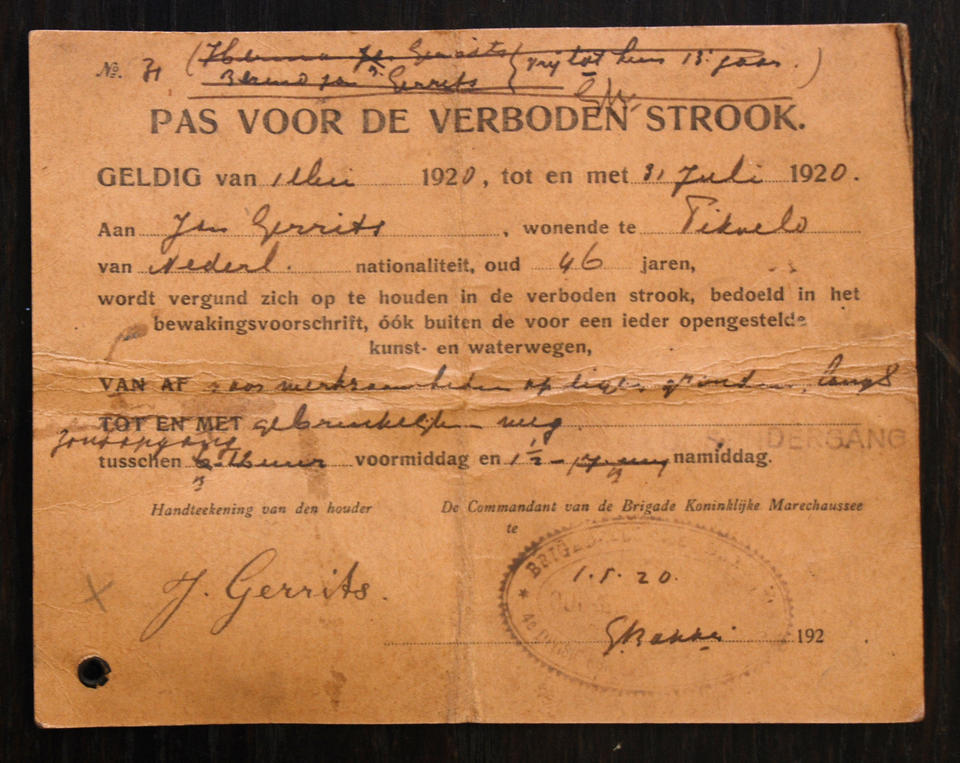 No. 31 Gerrits vrij tot hun 13e jaar.)
Berend Jan Gerrits
PAS VOOR DE VERBODEN STROOK.
GELDIG van 1 Mei 1920, tot en met 31 Juli 1920.
Aan Jan Gerrits, wonende te
van Nederl. nationaliteit, oud 46 jaren,
wordt vergund zich op te houden in de verboden strook, bedoeld in het
bewakingsvoorschrift, óók buiten de voor een ieder opengestelde
kunst- en waterwegen,
VAN AF voor werkzaamheden op eigen gronden, langs
TOT EN MET gebruikelijken weg.
zonsopgang ONDERGANG
tusschen voormiddag en 1½ namiddag.
Handteekening van den houder De Commandant van de Brigade Koninklijke Marechaussee
te
BRIGADE
1.5.20.
J. Gerrits.
192 .